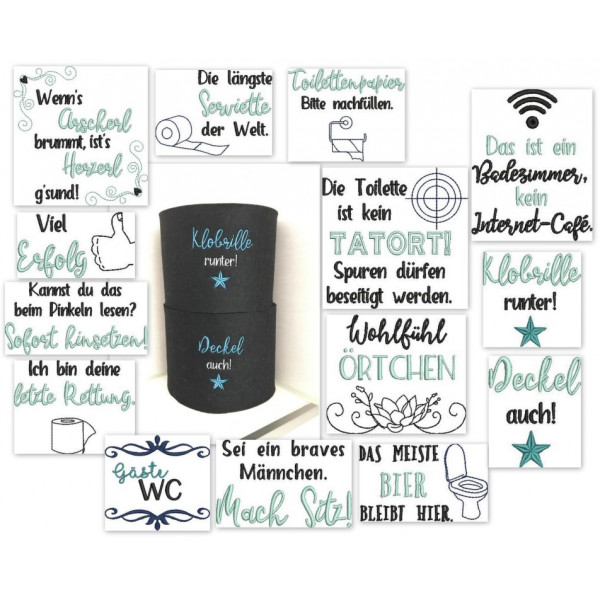 Wenn's
Arscherl
brummt, ist's
Herzerl
g'sund!
Die längste
Serviette
der Welt.
Toilettenpapier
Bitte nachfüllen.
Das ist ein
Badezimmer,
kein
Internet-Café.
Viel
Erfolg
Klobrille
runter!
Deckel
auch!
Die Toilette
ist kein
TATORT!
Spuren dürfen
beseitigt werden.
Kannst du das
beim Pinkeln lesen?
Sofort hinsetzen!
Klobrille
runter!
Wohlfühl
ÖRTCHEN
Ich bin deine
letzte Rettung.
Deckel
auch!
Gäste
WC
Sei ein braves
Männchen.
Mach Sitz!
DAS MEISTE
BIER
BLEIBT HIER.